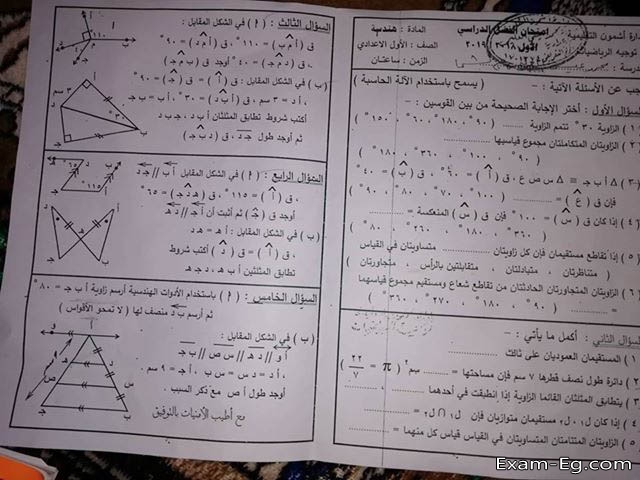 دارة أشمون التعليمية
توجيه الرياضيات
امتحان الفصل الدراسي
الأول ٢٠١٨
المادة : هندسية
الصف : الأول الاعدادي
الزمن : ساعتان
جب عن الأسئلة الآتية : – ( يسمح باستخدام الآلة الحاسبة )
السؤال الأول : أختر الإجابة الصحيحة من بين القوسين :
١ ) الزاوية ٣٠° تتمم الزاوية ( ٦٠° ، ٩٠° ، ١٨٠° ، ١٥٠° )
٢ ) الزاويتان المتكاملتان مجموع قياسيها
( ٩٠° ، ١٨٠° ، ٣٦٠° ، ١٠٠° )
٣ ) Δ أ ب جـ ≡ Δ س ص ع ، ق ( أ ) = ١٠٠° ، ق ( ب ) = ٤٠°
فإن ق ( ع ) = ( ١٠٠° ، ٧٠° ، ٨٠° ، ٩٠° )
٤ ) إذا كان ق ( س ) = ١٠٠° فإن ق ( س ) المنعكسة =
( ٣٦٠° ، ١٨٠° ، ٢٦٠° ، ٨٠° )
٥ ) إذا تقاطع مستقيمان فإن كل زاويتان متساويتان في القياس
( متناظرتان ، متبادلتان ، متقابلتين بالرأس ، متجاورتان )
٦ ) الزاويتان المتجاورتان الحادثتان من تقاطع شعاع ومستقيم مجموع قياسهما
= ( ٩٠° ، ١٨٠° ، ٢٧٠° ، ٣٦٠° )
السؤال الثاني : أكمل ما يأتي : –
١ ) المستقيمان العموديان على ثالث
٢ ) دائرة طول نصف قطرها ٧ سم فإن مساحتها = سم٢ ( π = ٢٢/٧ )
٣ ) يتطابق المثلثان القائما الزاوية إذا انطبقت في أحدهما
٤ ) إذا كان ل١ ، ل٢ مستقيمان متوازيان فإن ل١ ∩ ل٢ =
٥ ) الزاويتان المتتامتان المتساويتان في القياس قياس كل منهما =
السؤال الثالث : ( أ ) في الشكل المقابل :
ق ( أ م ب ) = ١١٠° ، ق ( أ م د ) = ٩٠°
، ق ( د م جـ ) = ٤٠° أوجد ق ( ب م جـ )
( ب ) في الشكل المقابل : ق ( أ ) = ق ( جـ ) = ٩٠°
، أ د = ٣ سم ، ق ( أ ب د ) = ٣٠° ، أ ب = ب جـ
أكتب شروط تطابق المثلثان أ ب د ، جـ ب د
ثم أوجد طول جـ د ، ق ( جـ ب د )
السؤال الرابع : ( أ ) في الشكل المقابل أ ب // جـ د
، ق ( أ ) = ١١٥° ، ق ( هـ د جـ ) = ٦٥°
أوجد ق ( جـ ) ثم أثبت أن أ جـ // د هـ
( ب ) في الشكل المقابل : أ هـ = هـ د
، ق ( أ ) = ق ( د ) أكتب شروط
تطابق المثلثين أ ب هـ ، د جـ هـ
السؤال الخامس : ( أ ) باستخدام الأدوات الهندسية أرسم زاوية أ ب جـ = ٨٠°
ثم أرسم ب د منصف لها ( لا تمحو الأقواس )
( ب ) في الشكل المقابل :
أ و // د هـ // س ص // ب جـ
، أ د = د س = س ب ، أ جـ = ٩ سم .
أوجد طول أ ص مع ذكر السبب .
مع أطيب الأمنيات بالتوفيق
Exam-Eg.com